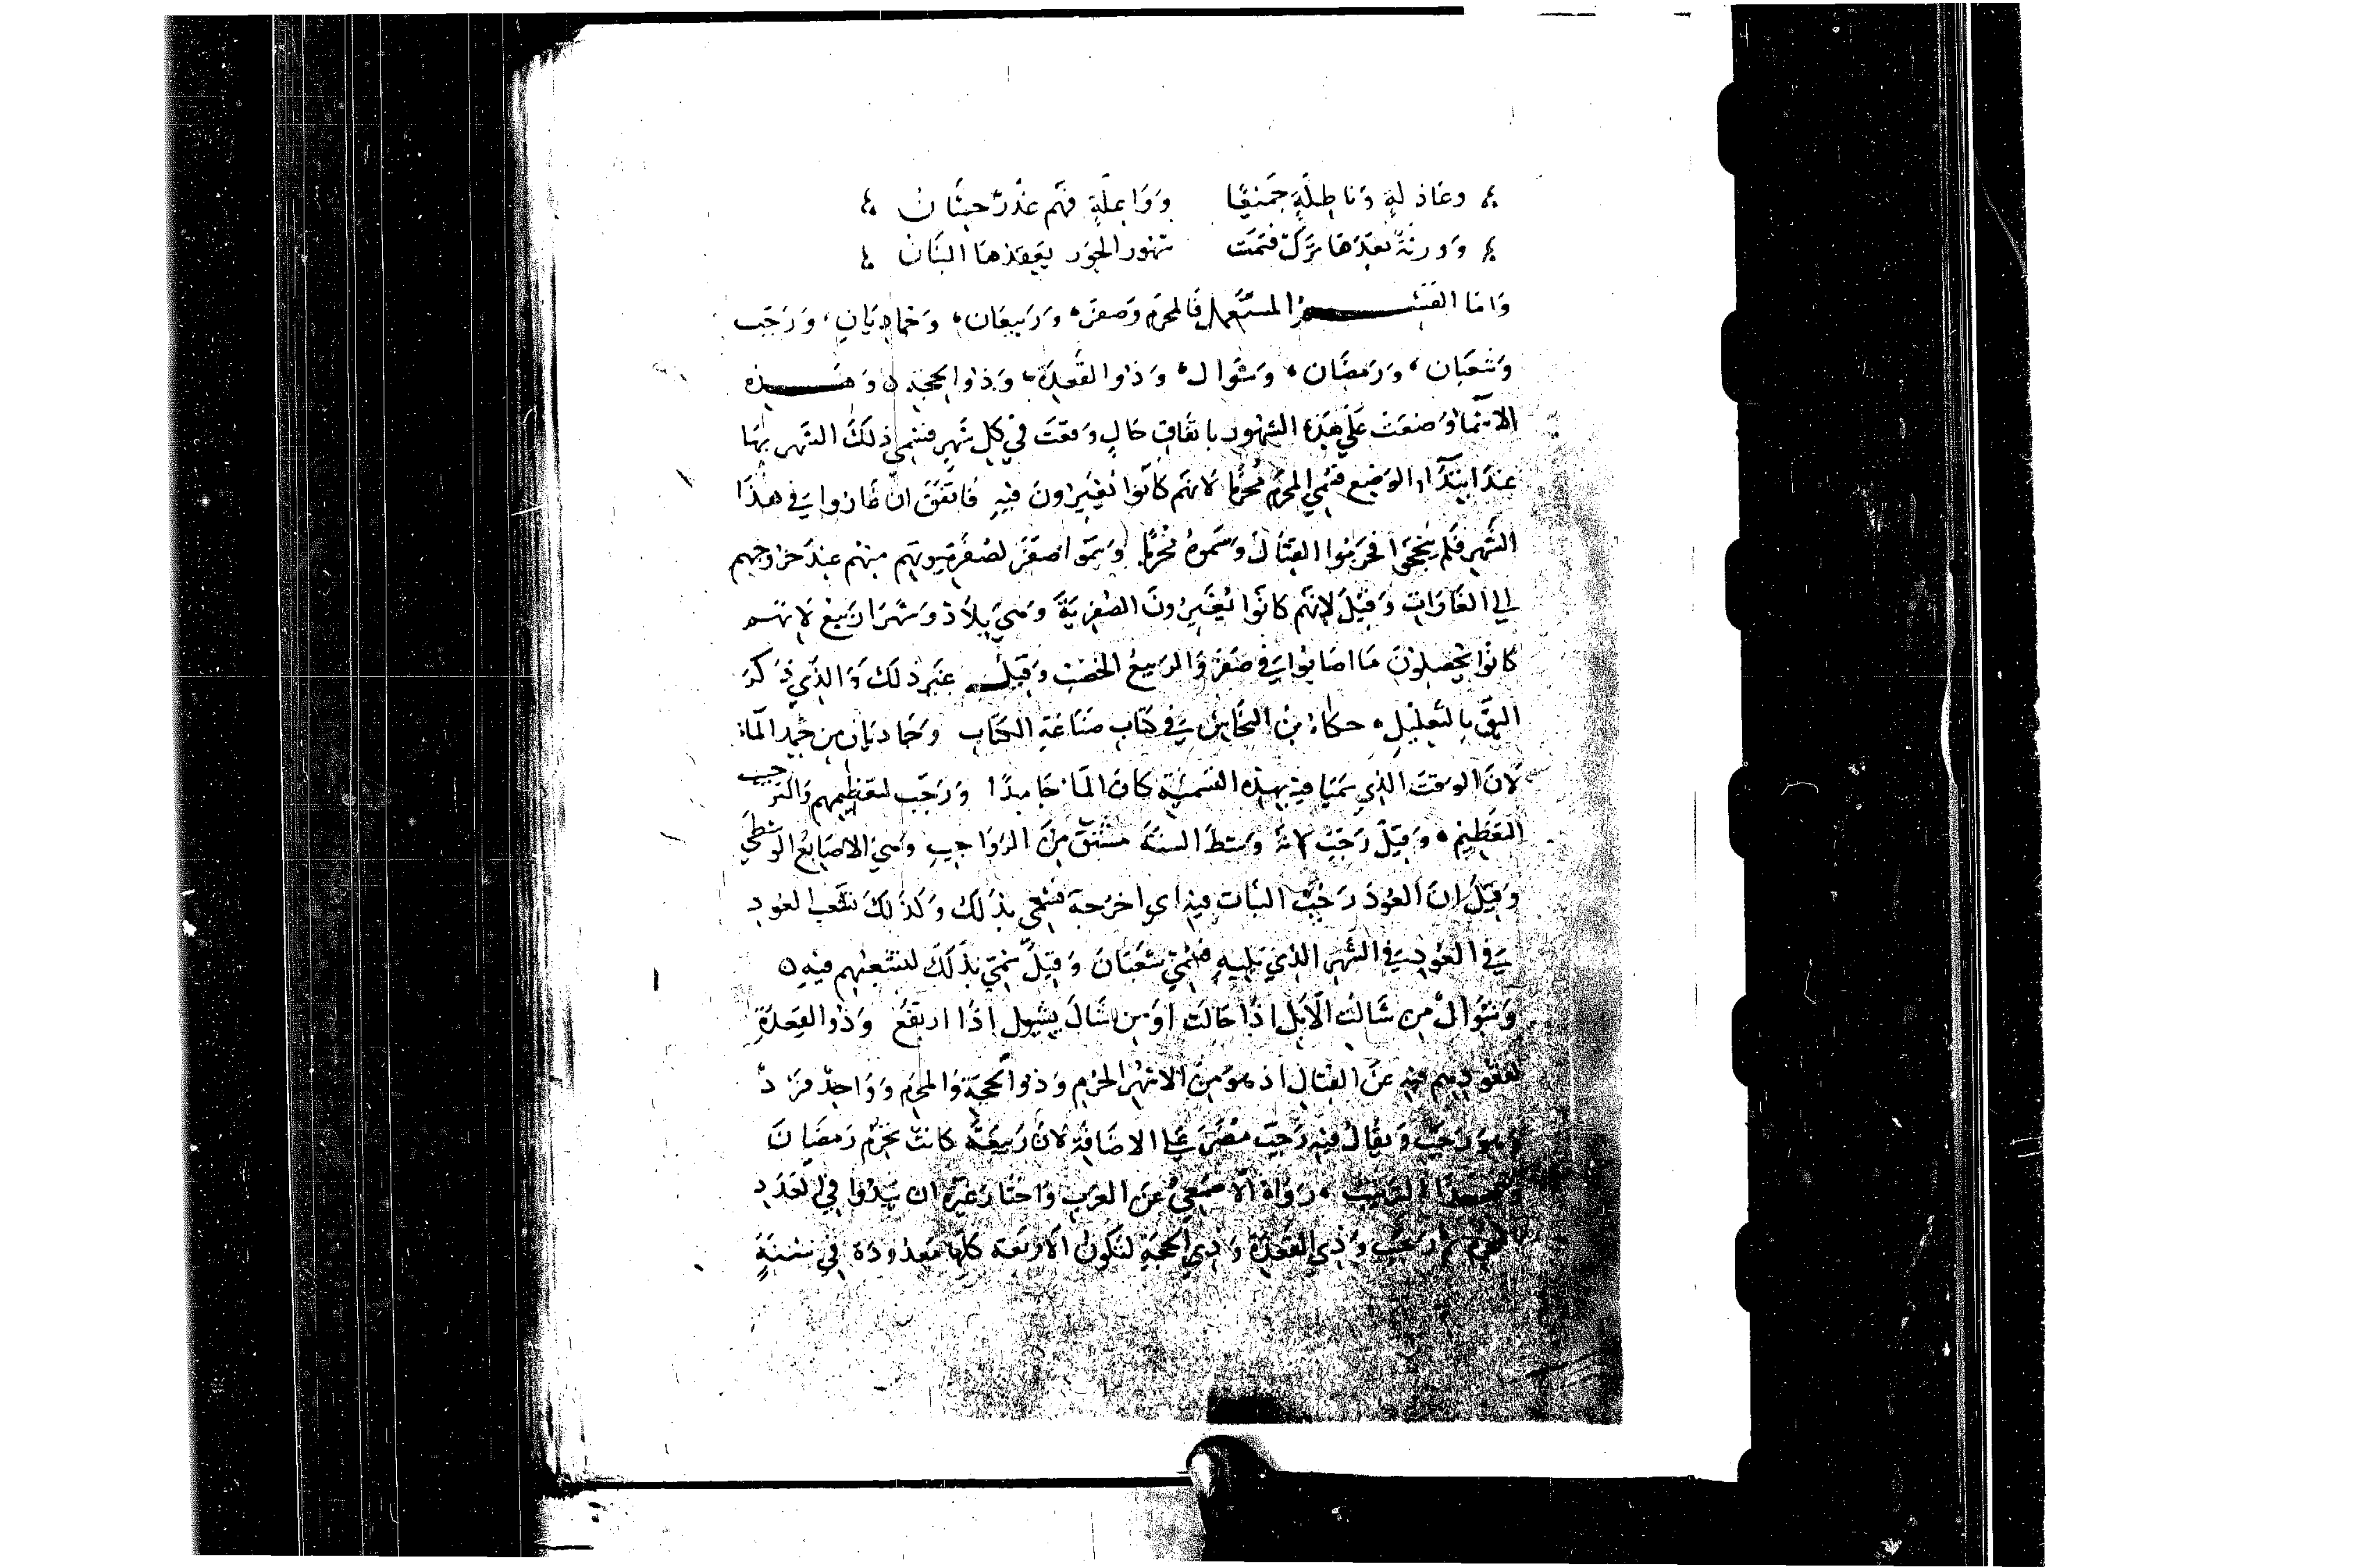 وعاذلة وناطلة جميعا وواعلة فهم غرر حسان
وورنة بعدها برك فتمت شهور الحور يعقدها البنان
واما القسم المستعمل فالمحرم وصفر وربيعان وجماديان ورجب
وشعبان ورمضان وشوال وذوا القعدة وذوا الحجة وهذه
الاسما وضعت على هذه الشهور باتفاق حال وقعت في كل شهر فسمي ذلك الشهر بها
عند ابتداء الوضع فسمي المحرم محرما لانهم كانوا يغيرون فيه فاتفق ان غاروا في هذا
الشهر فلم ينجحوا فحرموا القتال وسموه محرما وسموا صفر لصفر بيوتهم منهم عند خروجهم
الي الغارات وقيل لانهم كانوا يغيرون الصفرية وهي بلاد وشهرا ربيع لانهم
كانوا يحصلون ما اصابوا في صفر والربيع الخصب وقيل غير ذلك والذي ذكر
اليق بالتعليل حكاه بن النحاس في كتاب صناعة الكتاب وجماديان من جمد الماء
لان الوقت الذي سميا فيه بهذه التسمية كان الماء جامدا ورجب لتعظيمهم والترجيب
التعظيم وقيل رجب لانه وسط السنة مشتق من الرواجب وهي الاصابع الوسطي
وقيل ان العود رجب النبات فيه اي اخرجه فسمي بذلك وكذلك تشعب العود
في العود في الشهر الذي يليه فسمي شعبان وقيل سمي بذلك لتشعبهم فيه
وشوال من شالت الابل اذا حالت او من شال يشول اذا ارتفع وذوا القعدة
لقعودهم فيه عن القتال اذ هو من الاشهر الحرم وذوا الحجة والمحرم وواحد فرد
وهو رجب ويقال فيه رجب مضر علي الاضافة لان ربيعة كانت تحرم رمضان
الترتيب رواه الاصمعي عن العرب واختار غيره ان يبدوا في العدد
المحرم ثم رجب وذي القعدة وذي الحجة لتكون الاربعة كلها معدودة في سنة